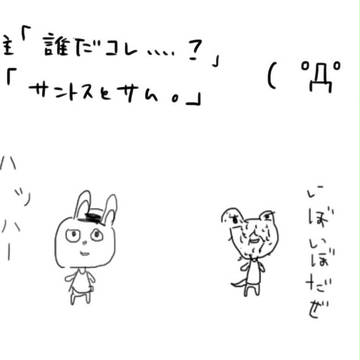 主「誰だコレ.....?」
「サントスとサム。」
( ゚Д゚
ハッハー
いぼいぼだぜ